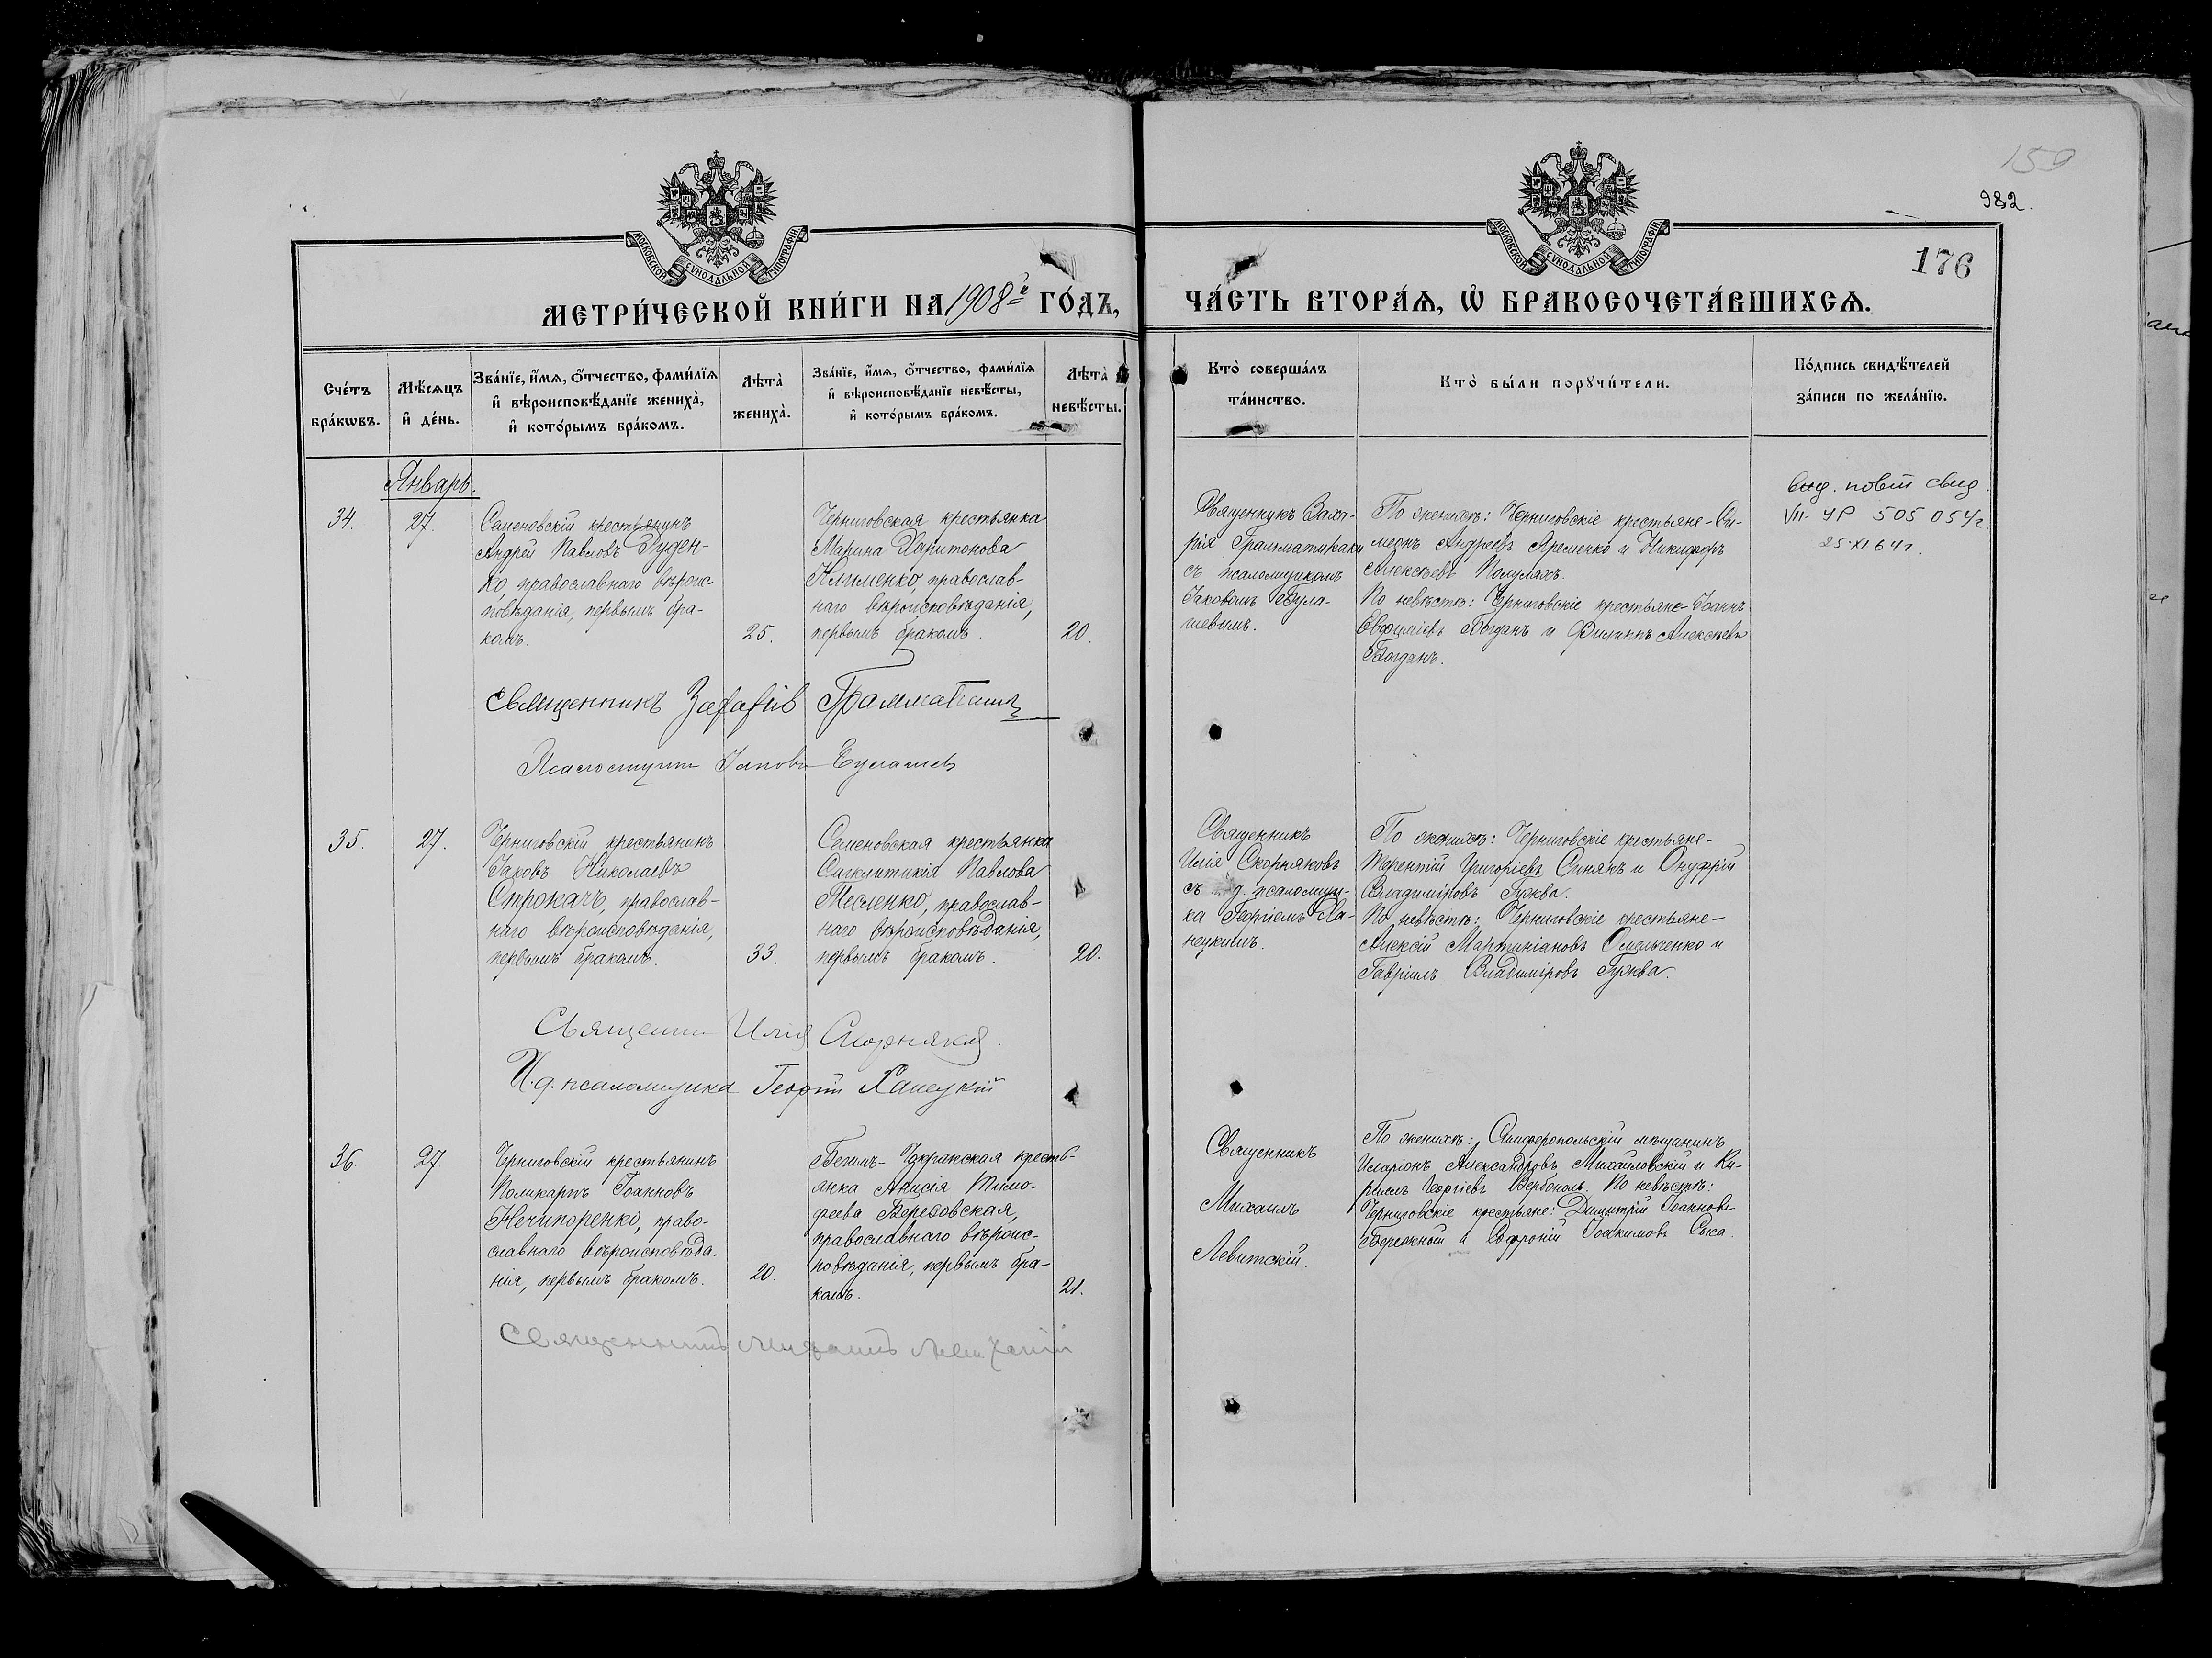 150
982.
176
МОСКОВСКОЙ СѴНОДАЛЬНОЙ ТИПОГРАФІИ
МОСКОВСКОЙ СѴНОДАЛЬНОЙ ТИПОГРАФІИ
МЕТРИ́ЧЕСКОЙ КНИ́ГИ НА 1908й ГО́ДЪ,
ЧА́СТЬ ВТОРА́Ѧ, Ѽ БРАКОСОЧЕТА́ВШИХСѦ.
Сче́тъ
бра́кѡвъ.
Мѣ́сѧцъ
и҆ де́нь.
Зва́нїе, и҆́мѧ, ѻ҆́тчество, фами́лїѧ
и҆ вѣроисповѣ́данїе жениха̀,
и҆ кото́рымъ бра́комъ.
Лѣта̀
жениха̀.
Зва́нїе, и҆́мѧ, ѻ҆́тчество, фами́лїѧ
и҆ вѣроисповѣ́данїе невѣ́сты,
и҆ кото́рымъ бра́комъ.
Лѣта̀
невѣ́сты.
Кто̀ соверша́лъ
та́инство.
Кто̀ бы́ли порꙋчи́тели.
По́дпись свидѣ́телей
за́писи по жела́нїю.
Январь.
34.
27.
Семеновскій крестьянинъ
Андрей Павловъ Руден-
ко, православнаго вѣроис-
повѣданія, первымъ бра-
комъ.
25.
Черниговская крестьянка
Марина Харитонова
Клименко, православ-
наго вѣроисповѣданія,
первымъ бракомъ.
20.
Священникъ Заха-
рія Грамматикаки
съ псаломщикомъ
Іаковомъ Була-
шевымъ.
По женихѣ: Черниговскіе крестьяне - Си-
меонъ Андреевъ Яременко и Никифоръ
Алексѣевъ Полуляхъ.
По невѣстѣ: Черниговскіе крестьяне - Іоаннъ
Евфиміевъ Богданъ и Филиппъ Алексѣевъ
Богданъ.
выд. повт свид.
VII-УР 505 054г.
25.XI 64г.
Священникъ Захарія
Псаломщикъ Іаковъ Булашевъ
35.
27.
Черниговскій крестьянинъ
Іаковъ Николаевъ
Строкачъ, православ-
наго вѣроисповѣданія,
первымъ бракомъ.
33.
Семеновская крестьянка
Сигклитикія Павлова
Месленко, православ-
наго вѣроисповѣданія,
первымъ бракомъ.
20.
Священникъ
Илія Скорняковъ
съ д. псаломщи-
ка Георгіемъ Ха-
нецкимъ.
По женихѣ: Черниговскіе крестьяне -
Терентій Григоріевъ Синякъ и Онуфрій
Владиміровъ Гужва.
По невѣстѣ: Черниговскіе крестьяне -
Алексій Мартиніановъ Омельченко и
Гавріилъ Владиміровъ Гужва.
Священникъ Илія Скорняковъ.
И.д. псаломщика Георгій Ханецкій
36.
27.
Черниговскій крестьянинъ
Поликарпъ Іоанновъ
Нечипоренко, право-
славнаго вѣроисповѣда-
нія, первымъ бракомъ.
20.
Бегимъ-Чокракская кресть-
янка Анисія Тимо-
феева Березовская,
православнаго вѣроис-
повѣданія, первымъ бра-
комъ.
21.
Священникъ
Михаилъ
Левитскій.
По женихѣ: Симферопольскій мѣщанинъ
Иларіонъ Александровъ Михайловскій и Ки-
риллъ Георгіевъ По невѣстѣ:
Черниговскіе крестьяне: Димитрій Іоанновъ
Бережной и Софроній Іоакимовъ Сыса.
Священникъ Михаилъ Левитскій